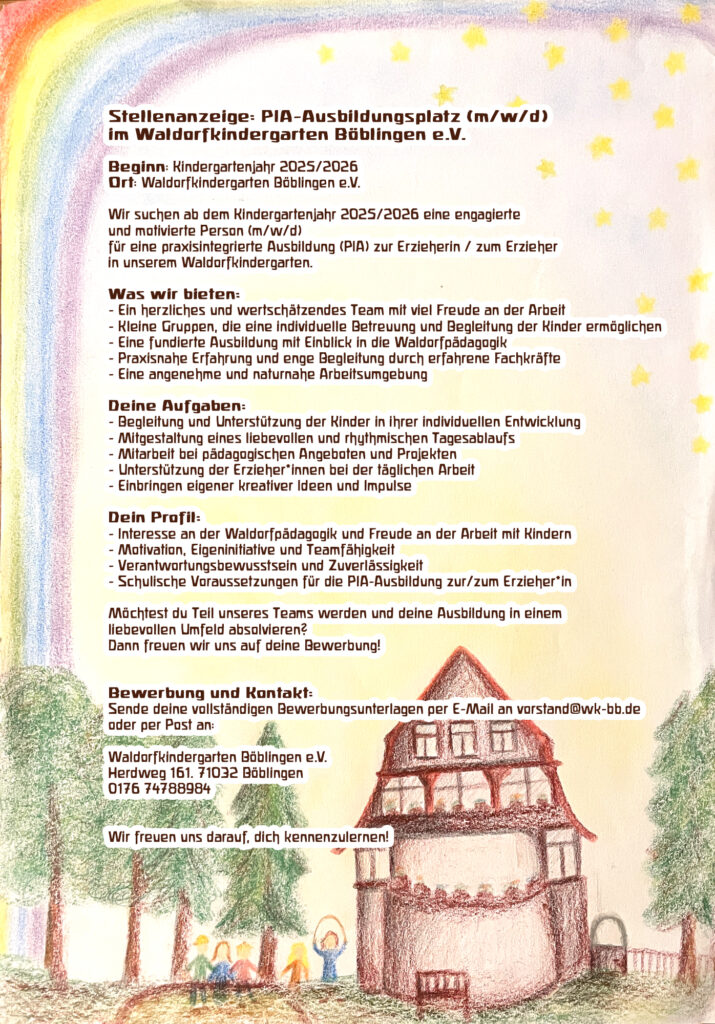 Stellenanzeige: PIA-Ausbildungsplatz (m/w/d)
im Waldorfkindergarten Böblingen e.V.
Beginn: Kindergartenjahr 2025/2026
Ort: Waldorfkindergarten Böblingen e.V.
Wir suchen ab dem Kindergartenjahr 2025/2026 eine engagierte
und motivierte Person (m/w/d)
für eine praxisintegrierte Ausbildung (PIA) zur Erzieherin / zum Erzieher
in unserem Waldorfkindergarten.
Was wir bieten:
- Ein herzliches und wertschätzendes Team mit viel Freude an der Arbeit
- Kleine Gruppen, die eine individuelle Betreuung und Begleitung der Kinder ermöglichen
- Eine fundierte Ausbildung mit Einblick in die Waldorfpädagogik
- Praxisnahe Erfahrung und enge Begleitung durch erfahrene Fachkräfte
- Eine angenehme und naturnahe Arbeitsumgebung
Deine Aufgaben:
- Begleitung und Unterstützung der Kinder in ihrer individuellen Entwicklung
- Mitgestaltung eines liebevollen und rhythmischen Tagesablaufs
- Mitarbeit bei pädagogischen Angeboten und Projekten
- Unterstützung der Erzieher*innen bei der täglichen Arbeit
- Einbringen eigener kreativer Ideen und Impulse
Dein Profil:
- Interesse an der Waldorfpädagogik und Freude an der Arbeit mit Kindern
- Motivation, Eigeninitiative und Teamfähigkeit
- Verantwortungsbewusstsein und Zuverlässigkeit
- Schulische Voraussetzungen für die PIA-Ausbildung zur/zum Erzieher*in
Möchtest du Teil unseres Teams werden und deine Ausbildung in einem
liebevollen Umfeld absolvieren?
Dann freuen wir uns auf deine Bewerbung!
Bewerbung und Kontakt:
Sende deine vollständigen Bewerbungsunterlagen per E-Mail an vorstand@wk-bb.de
oder per Post an:
Waldorfkindergarten Böblingen e.V.
Herdweg 161. 71032 Böblingen
0176 74788984
Wir freuen uns darauf, dich kennenzulernen!